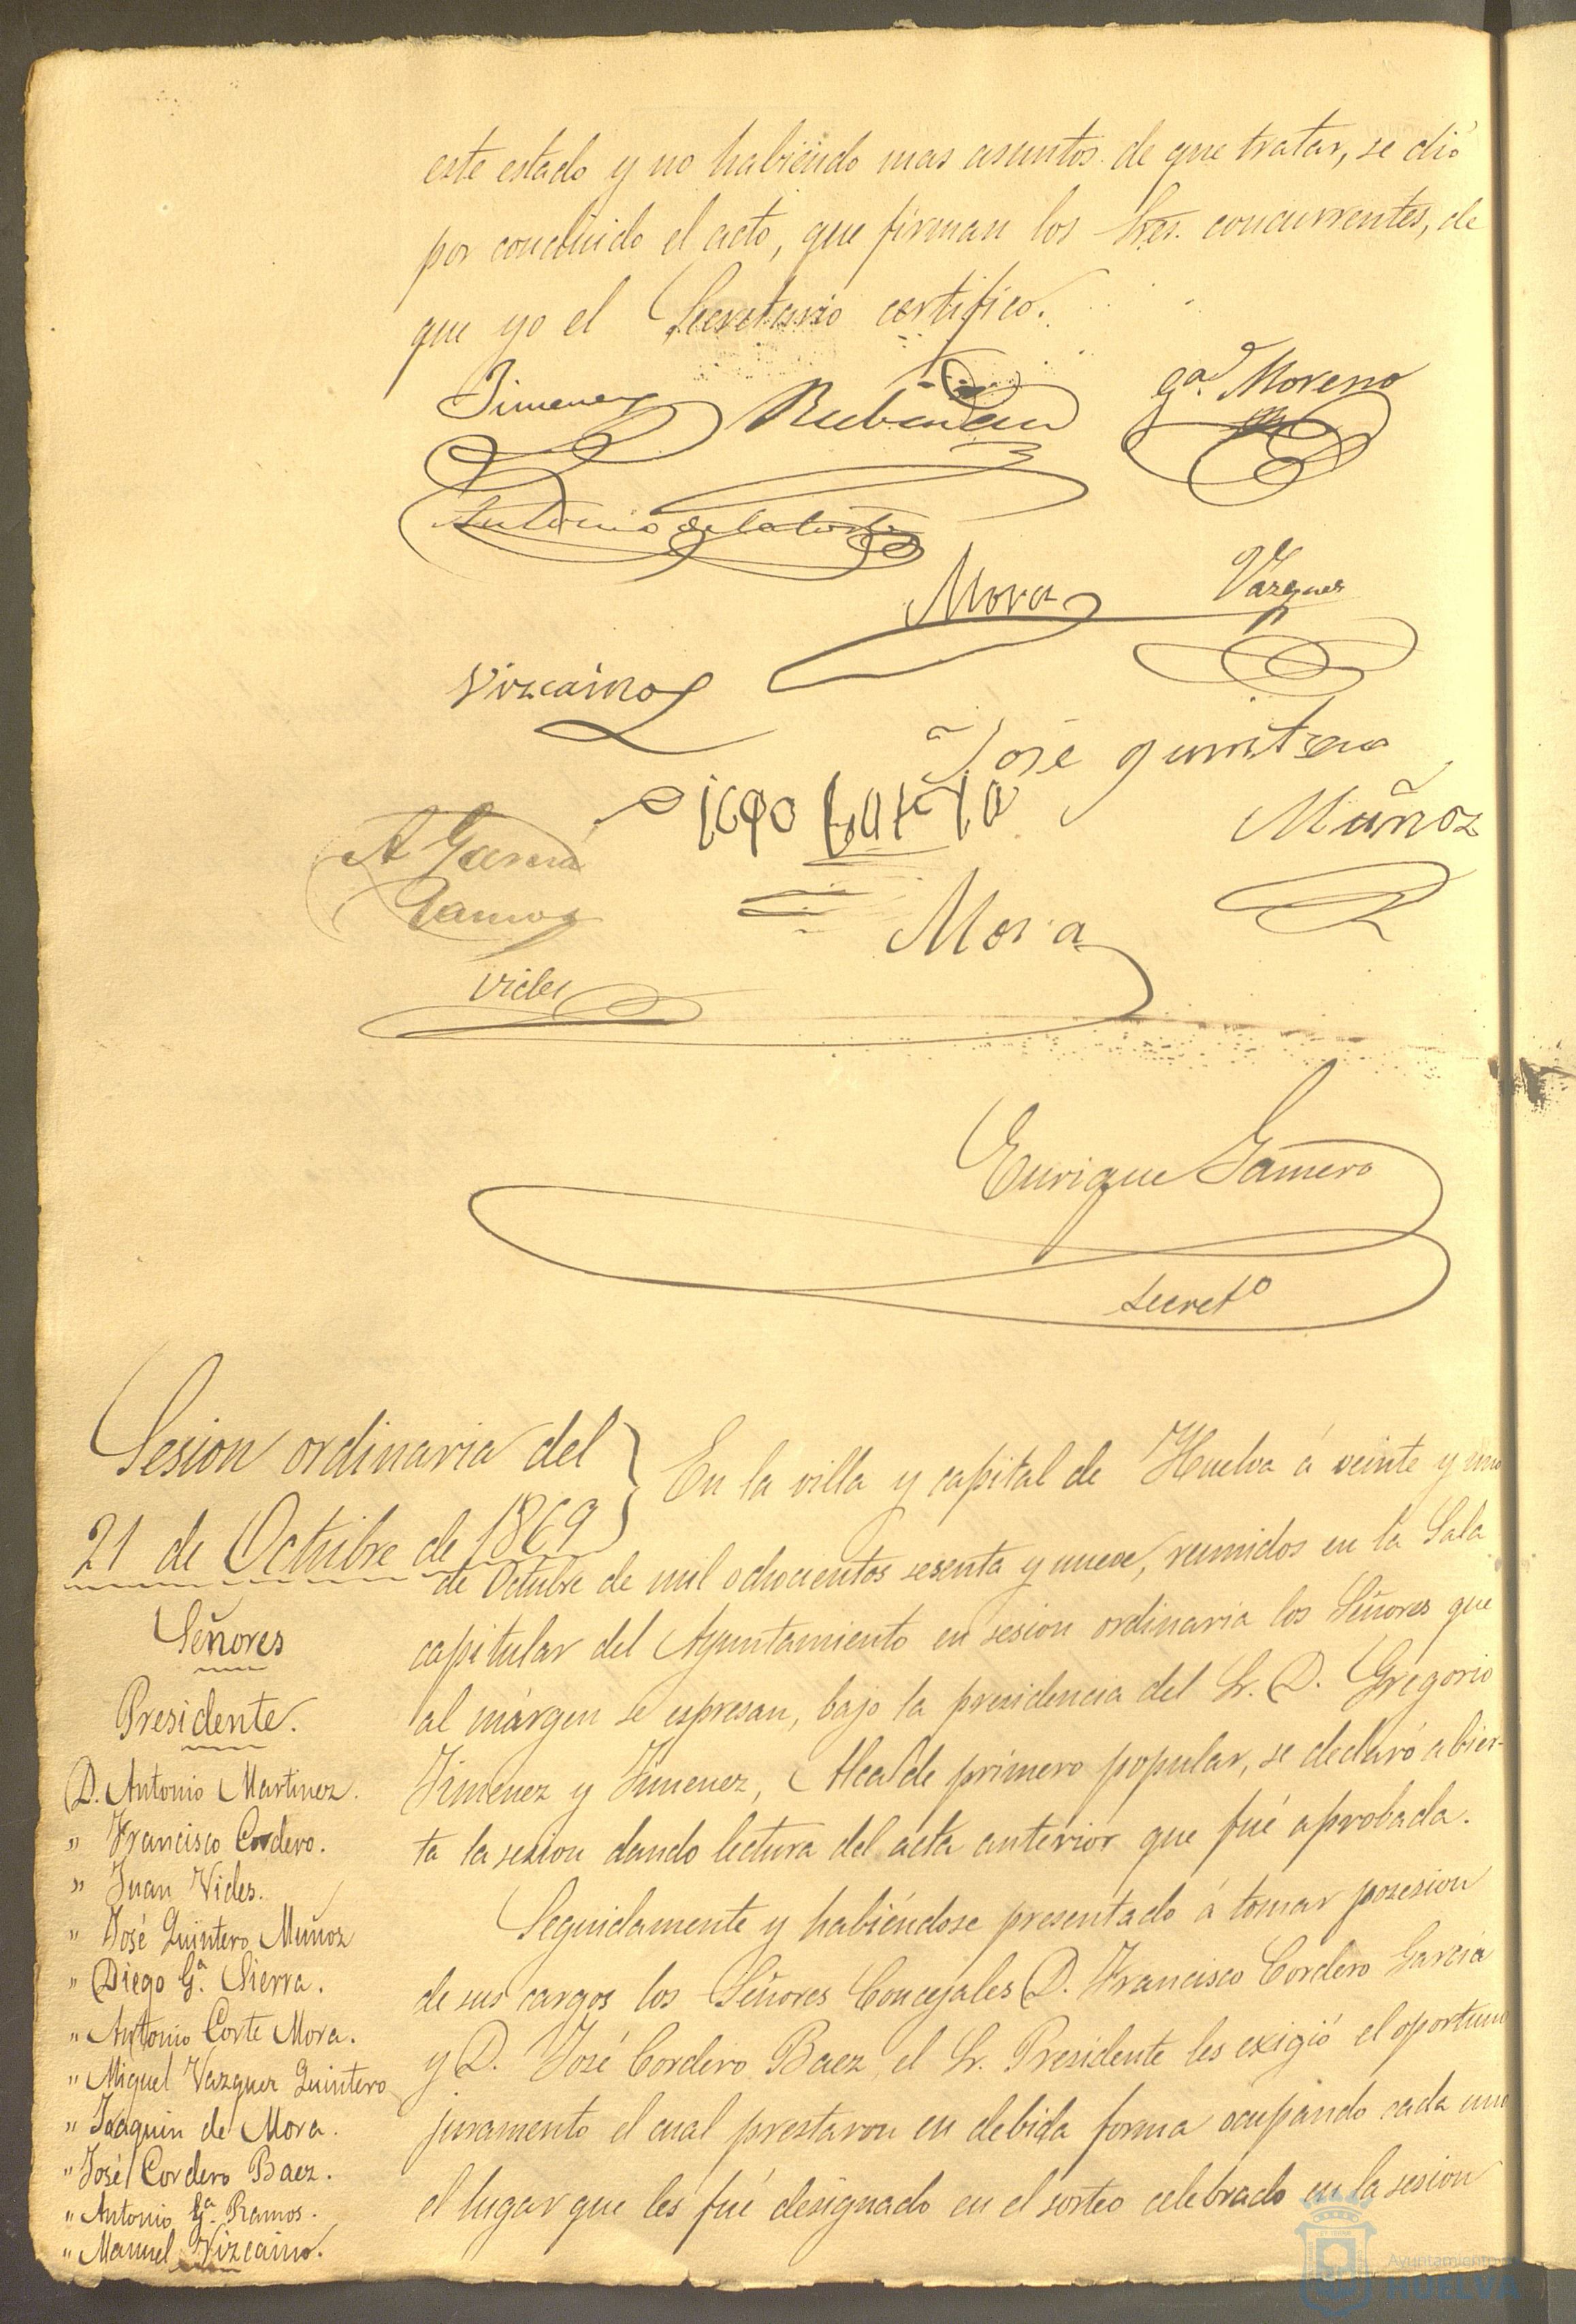 este estado y no habiendo mas asuntos de que tratar, se dió
por concluido el acto, que firman los Sres. concurrentes, de
que yo el Secretario certifico.
Jimenez
Gª. Moreno
Antonio de la Corte
Mora
Vazquez
Vizcaino
José quintero
Muñoz
Diego Garcia
A. Garcia
Ramos
Mora
Vides
Enrique Gamero
Secretº
Sesion ordinaria del
21 de Octubre de 1869
Señores
Presidente.
D. Antonio Martinez.
" Francisco Cordero.
" Juan Vides.
" José Quintero Muñoz
" Diego Gª. Sierra.
" Antonio Corte Mora.
" Miguel Vazquez Quintero
" Joaquin de Mora.
" José Cordero Baez.
" Antonio Gª. Ramos.
" Manuel Vizcaino.
En la villa y capital de Huelva á veinte y uno
de Octubre de mil ochocientos sesenta y nueve, reunidos en la Sala
capitular del Ayuntamiento en sesion ordinaria los Señores que
al márgen se espresan, bajo la presidencia del Sr. D. Gregorio
Jimenez y Jimenez, Alcalde primero popular, se declaró abier-
ta la sesion dando lectura del acta anterior que fué aprobada.
Seguidamente y habiéndose presentado á tomar posesion
de sus cargos los Señores Concejales D. Francisco Cordero Garcia
y D. José Cordero Baez, el Sr. Presidente les exigió el oportuno
juramento el cual prestaron en debida forma ocupando cada uno
el lugar que les fué designado en el sorteo celebrado en la sesion
Ayuntamiento
HUELVA